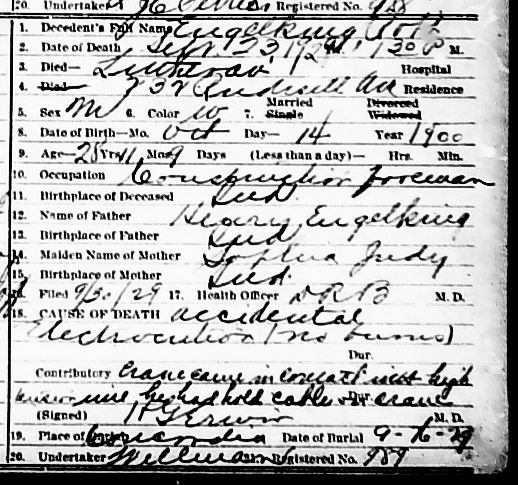 20. Undertaker Registered No. 988
1. Decedent's Full Name Engelking Otto
2. Date of Death Sept 23 1929, 130 P M.
3. Died— Lutheran Hospital
4. Died— 732 Ave Residence
5. Sex M 6. Color W 7. Married Single Divorced Widowed
8. Date of Birth—Mo. Oct Day— 14 Year 1900
9. Age— 28 Yrs 11 Mos 9 Days (Less than a day)— Hrs. Min.
10. Occupation Construction foreman
11. Birthplace of Deceased Ind
12. Name of Father Henry Engelking
13. Birthplace of Father Ind
14. Maiden Name of Mother Sophia Judy
15. Birthplace of Mother Ind
16. Filed 9/30/29 17. Health Officer D R B M. D.
18. CAUSE OF DEATH accidental
Electrocution (no burns)
Dur.
Contributory Crane came in contact with high
tension wire he had hold cable of crane
Dur.
(Signed) H Gerwin M. D.
19. Place of Burial Concordia Date of Burial 9-26-29
20. Undertaker Wellman Registered No. 989